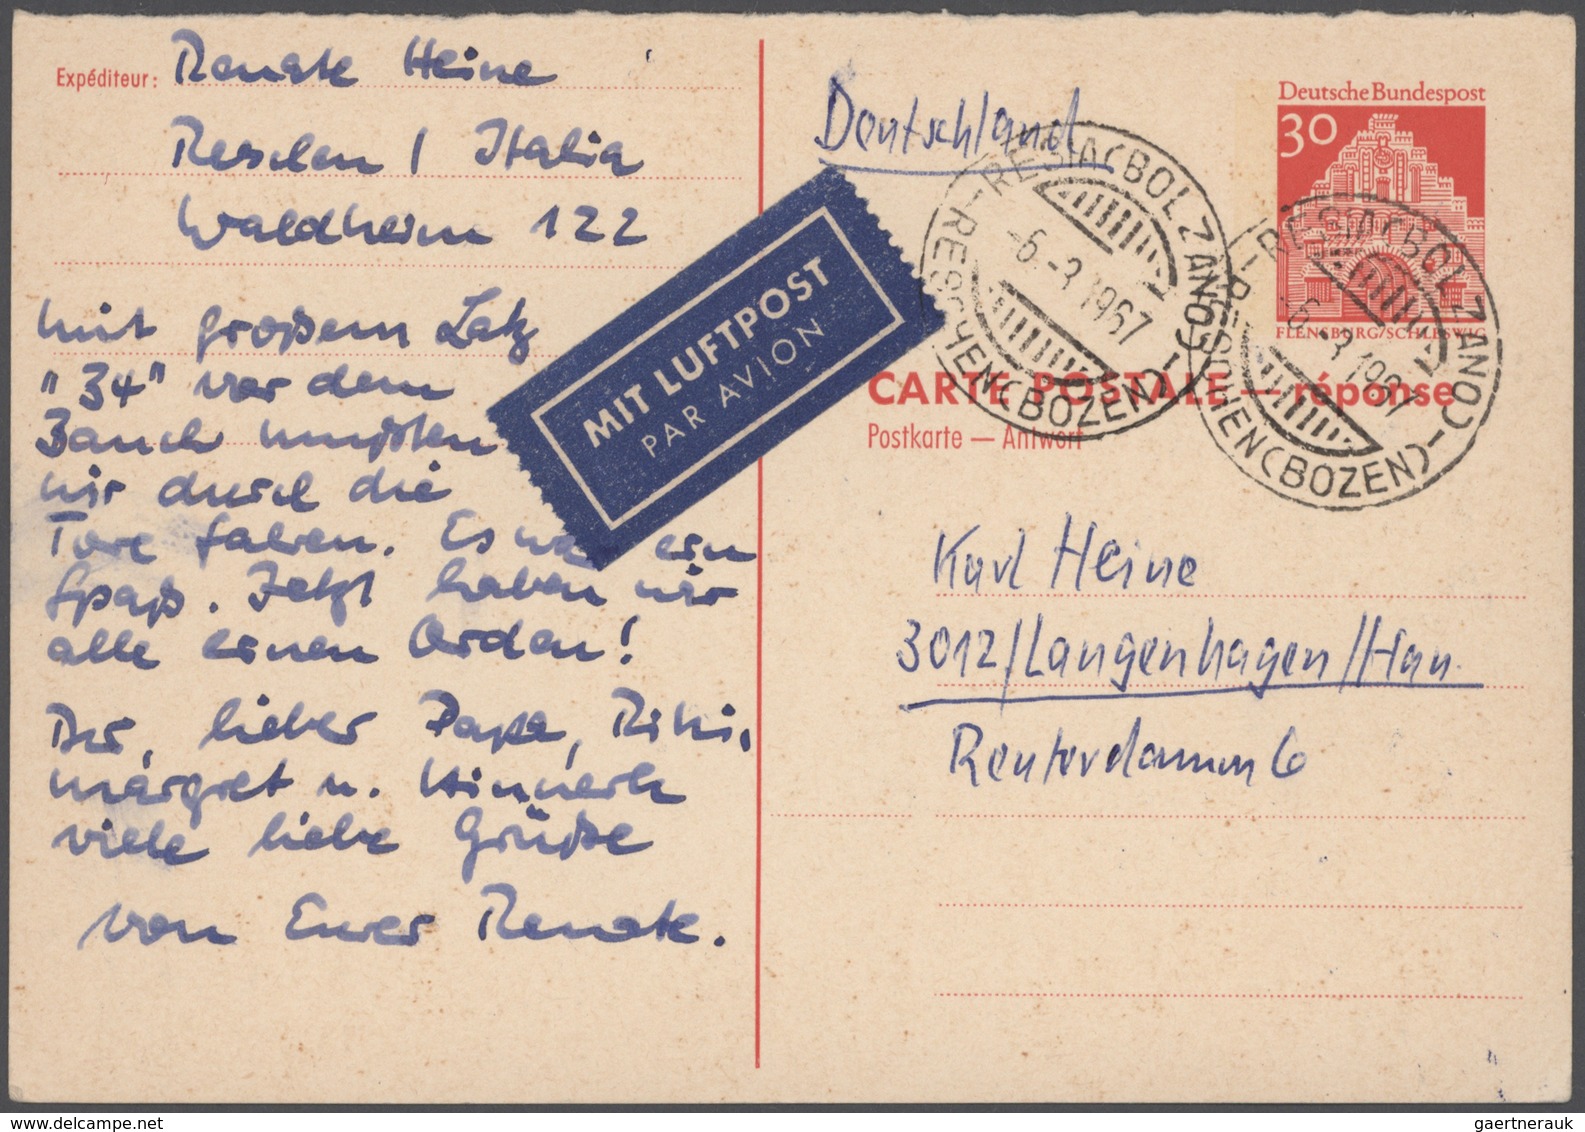 Expéditeur: Renate Heine
Reschen / Italia
Waldheim 122
mit großem Latz
"34" vor dem
Bauch mußten
wir durch die
Tore fahren. Es war ein
Spaß. Jetzt haben wir
alle einen Orden!
Dir, lieber Papa,
Margret u. Hinnerk
viele liebe Grüße
von Eurer Renate.
MIT LUFTPOST
PAR AVION
Deutschland
Deutsche Bundespost
30
FLENSBURG/SCHLESWIG
RESIA (BOLZANO)
-6.-3.1967
RESCHEN (BOZEN)
RESIA (BOLZANO)
-6.-3.1967
RESCHEN (BOZEN)
CARTE POSTALE — réponse
Postkarte — Antwort
Karl Heine
3012/Langenhagen/Han.
Reuterdamm 6
gaertnerauk @ delcampe.net